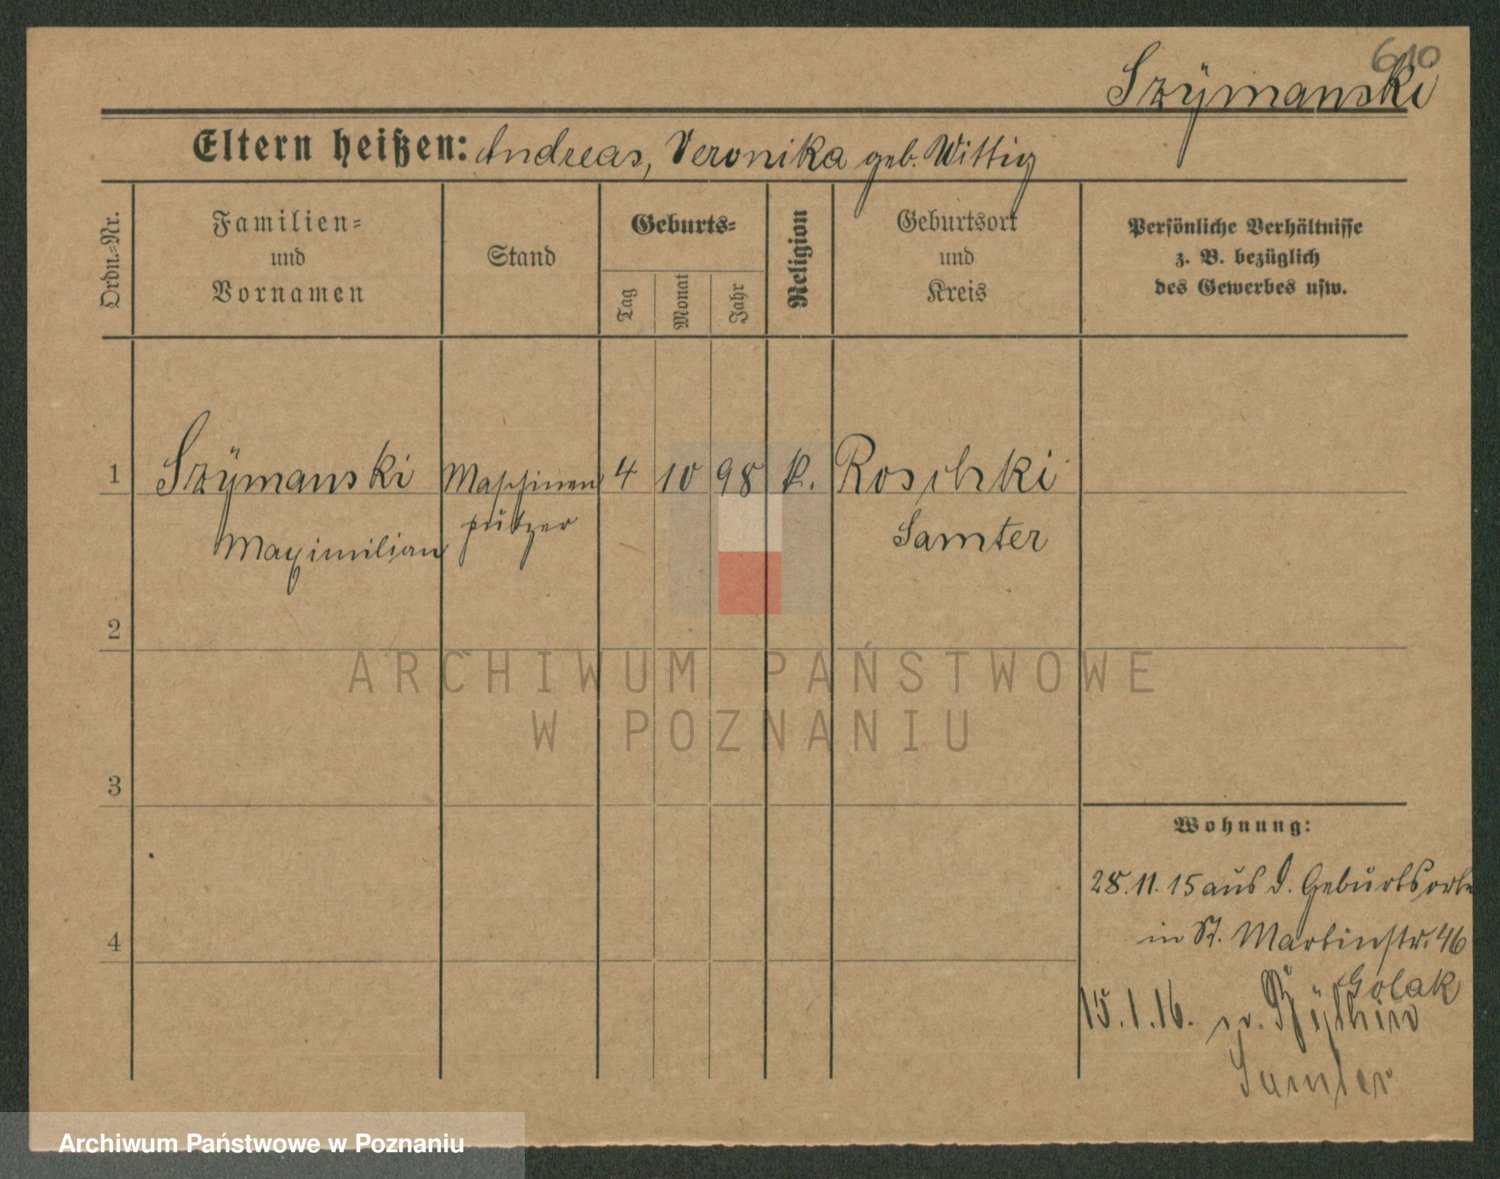 610
Szÿmanski
Eltern heißen: Andreas, Veronika geb. Wittig
Ordn.=Nr.
Familien=
und
Vornamen
Stand
Geburts=
Tag
Monat
Jahr
Religion
Geburtsort
und
Kreis
Persönliche Verhältnisse
z. B. bezüglich
des Gewerbes usw.
1 Szÿmanski Maschinen 4 10 98 k. Roschki
Maximilian putzer Samter
2
3
4
Wohnung:
28.11.15 aus d. Geburtsorte
in St. Martinstr. 46
Golak
15.1.16. n.
Samter
ARCHIWUM PAŃSTWOWE
W POZNANIU
Archiwum Państwowe w Poznaniu